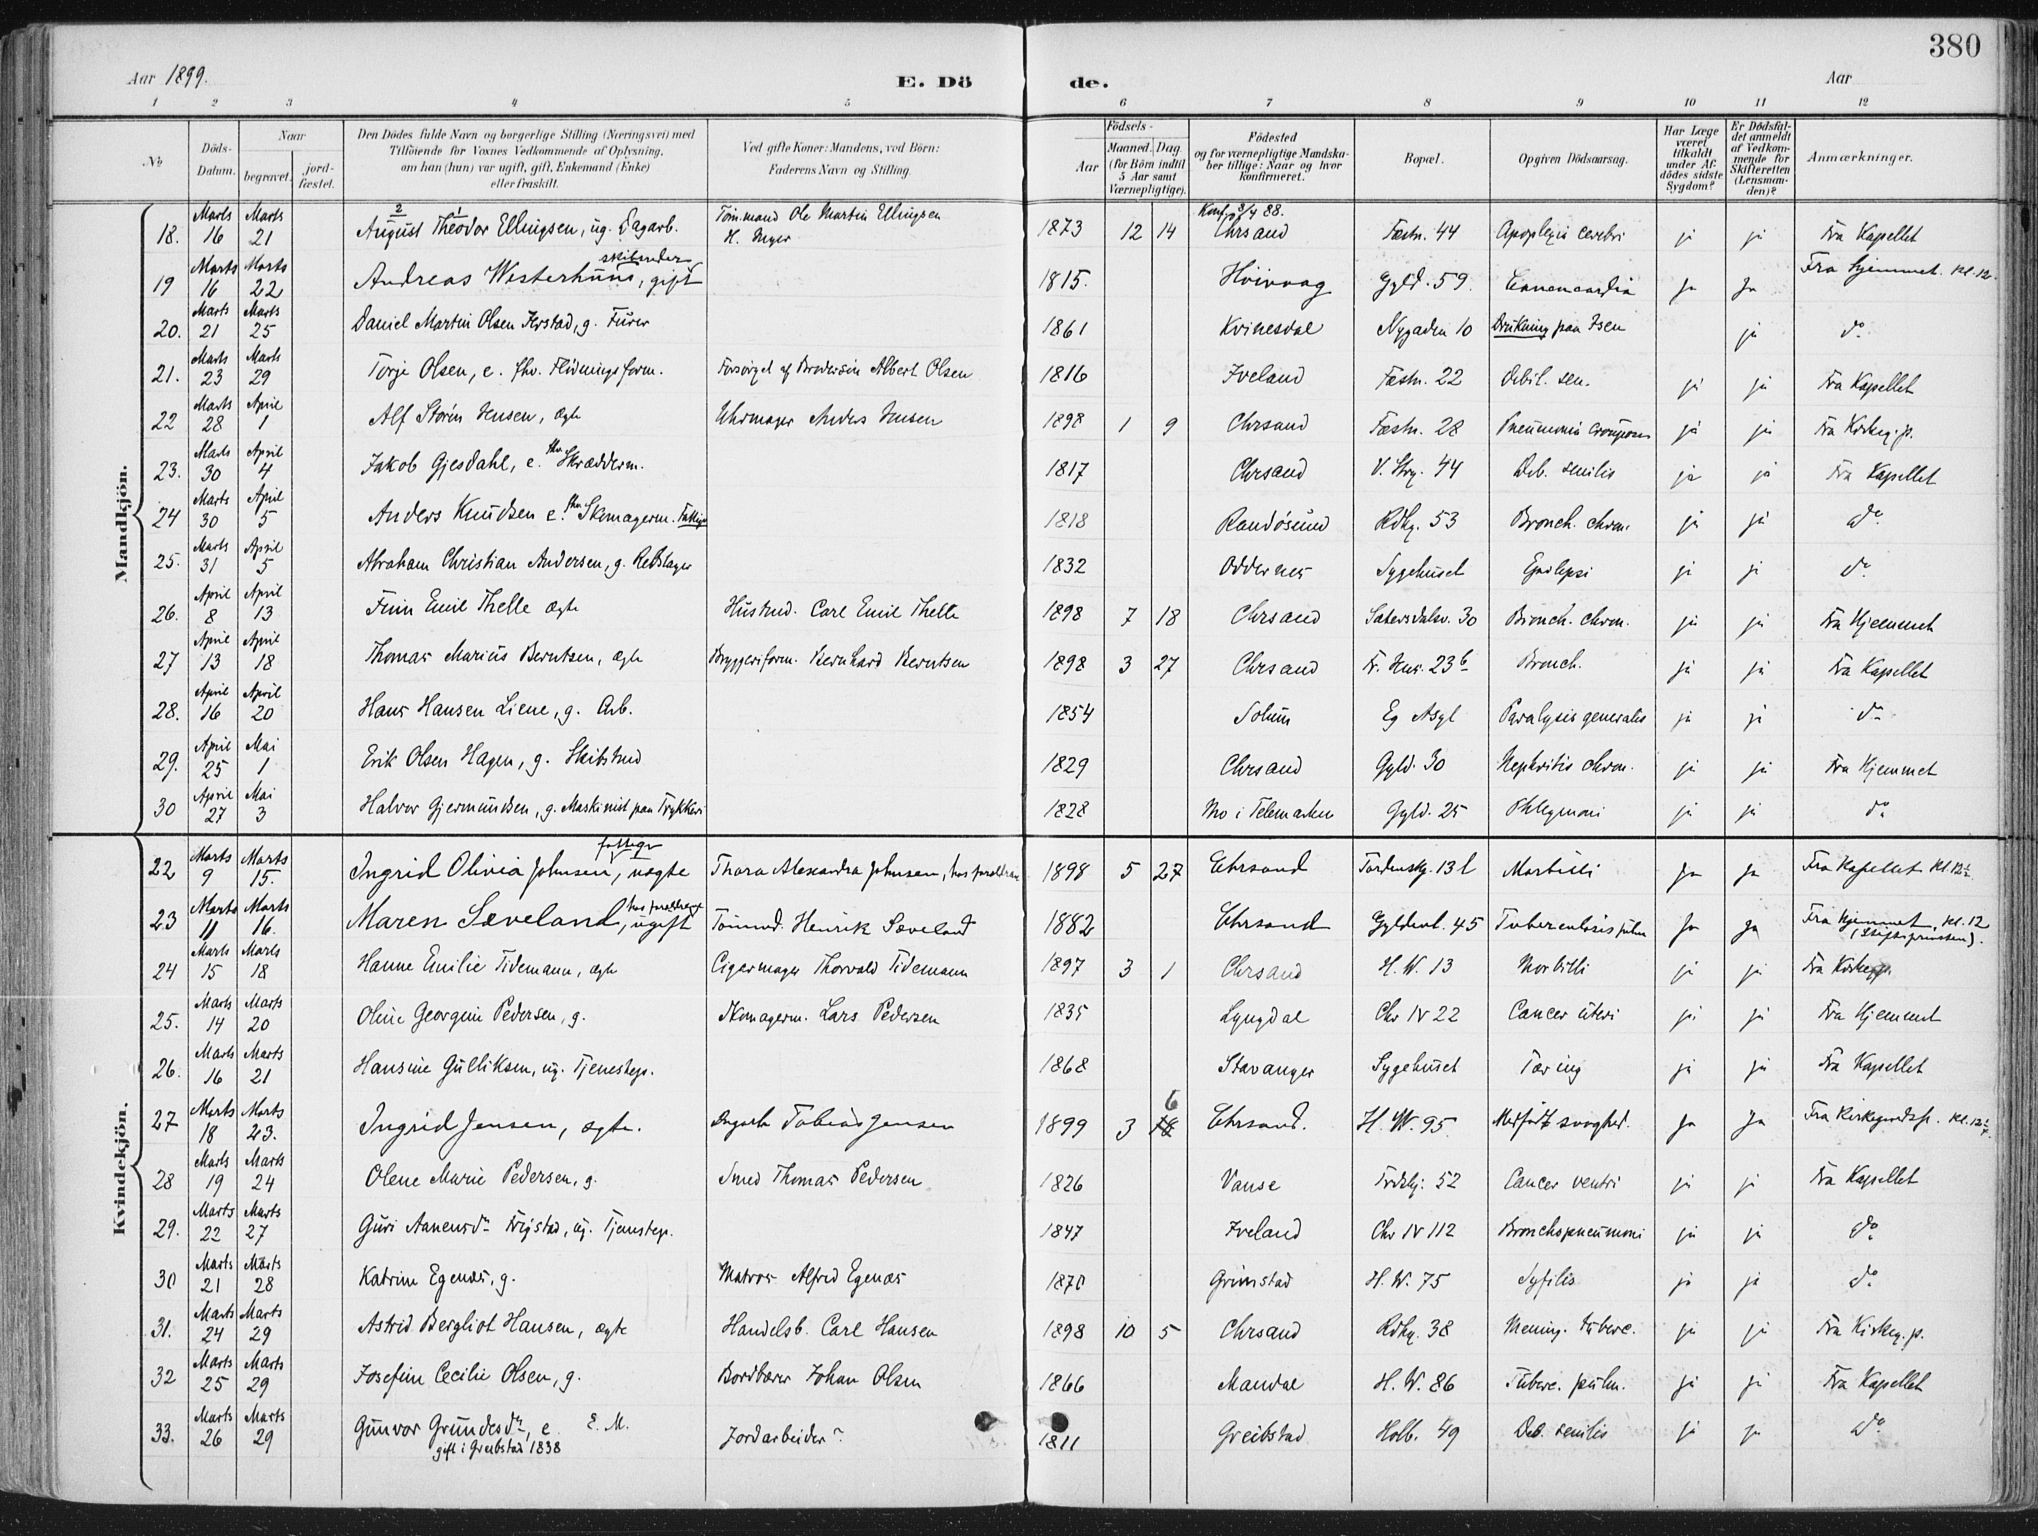 380
Aar 1899.
E. Dö de.
Aar
1 2 3 4 5 6 7 8 9 10 11 12
No
Döds-Datum.
Naar begravet. jordfæstet.
Den Dödes fulde Navn og borgerlige Stilling (Næringsvei) med Tilföiende for Voxnes Vedkommende af Oplysning, om han (hun) var ugift, gift, Enkemand (Enke) eller fraskilt.
Ved gifte Koner: Mandens, ved Börn: Faderens Navn og Stilling.
Aar
Födsels- Maaned. Dag (for Börn indtil 5 Aar samt Værnepligtige).
Födested og for værnepligtige Mandskaber tillige: Naar og hvor konfirmeret.
Bopæl.
Opgiven Dödsaarsag.
Har Læge været tilkaldt under Afdödes sidste Sygdom?
Er Dödsfaldet anmeldt af Vedkommende for Skifteretten (Lensmanden)?
Anmærkninger.
Mandkjön.
18. Marts 16 Marts 21 August 2 Theodor 1 Ellingsen, ug. Dagarb. Töm.mand Ole Martin Ellingsen H. Myer 1873 12 14 Konf. 8/4 88. Chrsand Fæstn. 44 Apoplexia cerebri ja ja Fra Kapellet
19 Marts 16 Marts 22 Andreas Westerhuus, skibsreder gift 1815. Höivaag Gyld. 59. ja ja Fra Hjemmet. Kl. 12.
20. Marts 21 Marts 25 Daniel Martin Olsen g. Furer 1861 Kvinesdal Nygaden 10 Drukning paa Isen ja do
21. Marts 23 Marts 29 Torje Olsen, e. fhv. Flödningsform. Forsörget af Brodersön Albert Olsen 1816 Iveland Fæstn. 22 Debil. sen. ja ja Fra Kapellet
22 Marts 28 April 1 Alf Storm Jensen, ægte Uhrmager Anders Jensen 1898 1 9 Chrsand Fæstn. 28 Pneumonia crouposa ja ja Fra Kirkeg.p.
23. Marts 30 April 4 Jakob Gjesdahl, e. fhv. Skrædderm. 1817 Chrsand V. Strg. 44 Deb. senilis ja ja Fra Kapellet
24 Marts 30 April 5 Anders Knudsen e. fhv. Skomagerm. Fattig 1818 Randösund Rdhg. 53 Bronch. chron. ja ja do
25. Marts 31 April 5 Abraham Christian Andersen, g. Rebslager 1832 Oddernes Sygehuset Epilepsi ja ja do
26. April 8 April 13 Finn Emil Thelle ægte Hustmd. Carl Emil Thelle 1898 7 18 Chrsand Sætersdalsv. 30 Bronch. chron. ja ja Fra Hjemmet
27 April 13 April 18 Thomas Marius Berntsen, ægte Bryggeriform. Bernhard Berntsen 1898 3 27 Chrsand 23 b Bronch. ja ja Fra Kapellet
28. April 16 April 20 Hans Hansen Liene, g. Arb. 1854 Solum Eg Asyl Paralysis generalis ja ja do
29. April 25 Mai 1 Erik Olsen Hagen, g. Skibstmd 1829 Chrsand Gyld. 30 Nephritis chron. ja ja Fra Hjemmet
30 April 27 Mai 3 Halvor Gjermundsen, g. Maskinist paa Trykkeri 1828 Mo i Telemarken Gyld. 25 Phlegmoni ja ja do
Kvindekjön.
22 Marts 9 Marts 15. Ingrid Olivia Johnsen, fattigv uægte Thora Alexandra Johnsen, hos forældrene 1898 5 27 Chrsand Tordenskg. 13 l Morbilli ja ja Fra Kapellet Kl. 12½
23 Marts 11 Marts 16. Maren Sæveland, hos forældrene ugift Tömmd. Henrik Sæveland 1882 Chrsand Gyldenl. 45 Tuberculosis pulm ja ja Fra Hjemmet, Kl. 12 (Stiftsprovsten).
24 Marts 15 Marts 18 Hanne Emilie Tidemann, ægte Cigarmager Thorvald Tidemann 1897 3 1 Chrsand H. W. 13 Morbilli ja ja Fra Kirkeg.p.
25. Marts 14 Marts 20 Oline Georgine Pedersen, g. Skomagerm. Lars Pedersen 1835 Lyngdal Chr IV 22 Cancer uteri ja ja Fra Hjemmet
26. Marts 16 Marts 21 Hansine Gulliksen, ug. Tjenestep. 1868 Stavanger Sygehuset Tæring ja ja Fra Kapellet
27 Marts 18 Marts 23. Ingrid Jensen, ægte. Tobias Jensen 1899 3 6 18 Chrsand. H. W. 95. Medfödt svaghed. ja ja Fra Kirkegaardsp. Kl. 12½.
28 Marts 19 Marts 24 Olene Marie Pedersen, g. Smed Thomas Pedersen 1826 Vanse 52 Cancer ventri ja ja Fra Kapellet
29. Marts 22 Marts 27 Guri Aanensdr Frigstad, ug. Tjenstep. 1847 Iveland Chr IV 112 Bronchopneumoni ja ja do
30 Marts 21 Marts 28 Katrine Egenæs, g. Matros Alfred Egenæs 1870 Grimstad H. W. 75 Syfilis ja ja do
31. Marts 24 Marts 29 Astrid Bergliot Hansen, ægte Handelsb. Carl Hansen 1898 10 5 Chrsand Rdhg. 38 Mening. tuberc. ja ja Fra Kirkeg.p.
32 Marts 25 Marts 29 Josefine Cecilie Olsen, g. Bordbærer Johan Olsen 1866 Mandal H. W. 86 Tuberc. pulm. ja ja Fra Kapellet
33. Marts 26 Marts 29 Gunvor Grundesdr, e E. M. gift i Greibstad 1838 Jordarbeider 1811 Greibstad Holb. 49 Deb. senilis ja ja do